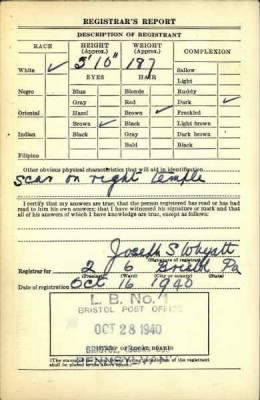 REGISTRAR'S REPORT
DESCRIPTION OF REGISTRANT
RACE HEIGHT (Approx.) WEIGHT (Approx.) COMPLEXION
5' 10" 187
White ✓ Sallow
EYES HAIR Light
Negro Blue Blonde Ruddy
Gray Red Dark ✓
Oriental Hazel Brown ✓ Freckled
Brown ✓ Black Light brown
Indian Black Gray Dark brown
Bald Black
Filipino
Other obvious physical characteristics that will aid in identification
Scar on right temple
I certify that my answers are true; that the person registered has read or has had
read to him his own answers; that I have witnessed his signature or mark and that
all of his answers of which I have knowledge are true, except as follows:
Joseph S
(Signature of registrar)
Registrar for 2 6 Pa
(Precinct) (Ward) (City or county) (State)
Date of registration Oct 16 1940
L. B. No. 1
BRISTOL POST OFFICE
OCT 28 1940
BRISTOL
PENNSYLVANIA
(STAMP OF LOCAL BOARD)